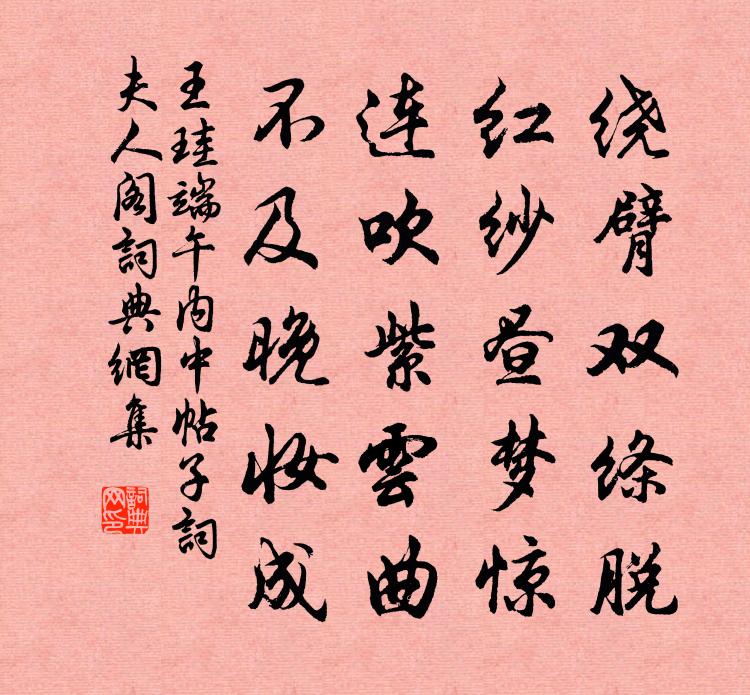 绕臂双绦脱
红纱昼梦惊
连吹紫雲曲
不及晚妆成
王珪端午内中帖子詞
夫人阁詞典網集
詞典
网印